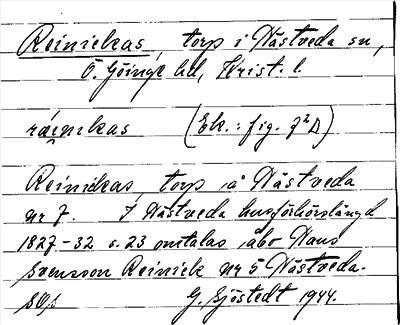 Reinickas, torp i Nästveda sn,
Ö. Göinge hd, Krist. l.
ræinikas (Ek.: fig. 7²D)
Reinickas, torp å Nästveda
nr 7. I Nästveda husförhörslängd
1827-32 s. 23 omtalas åbo Hans
Svensson Reinick nr 5 Nästveda.
G. Sjöstedt 1944.